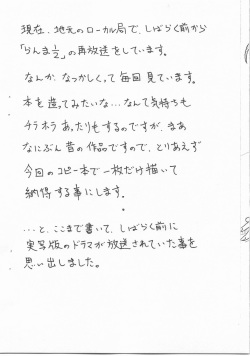 現在、地元のローカル局で、しばらく前から
「らんま1/2」の再放送をしています。
なんか、なつかしくって毎回見ています。
本を造ってみたいな…なんて気持ちも
チラホラあったりもするのですが、まあ
なにぶん昔の作品ですので、とりあえず
今回のコピー本で一枚だけ描いて
納得する事にします。
…と、ここまで書いて、しばらく前に
実写版のドラマが放送されていた事を
思い出しました。